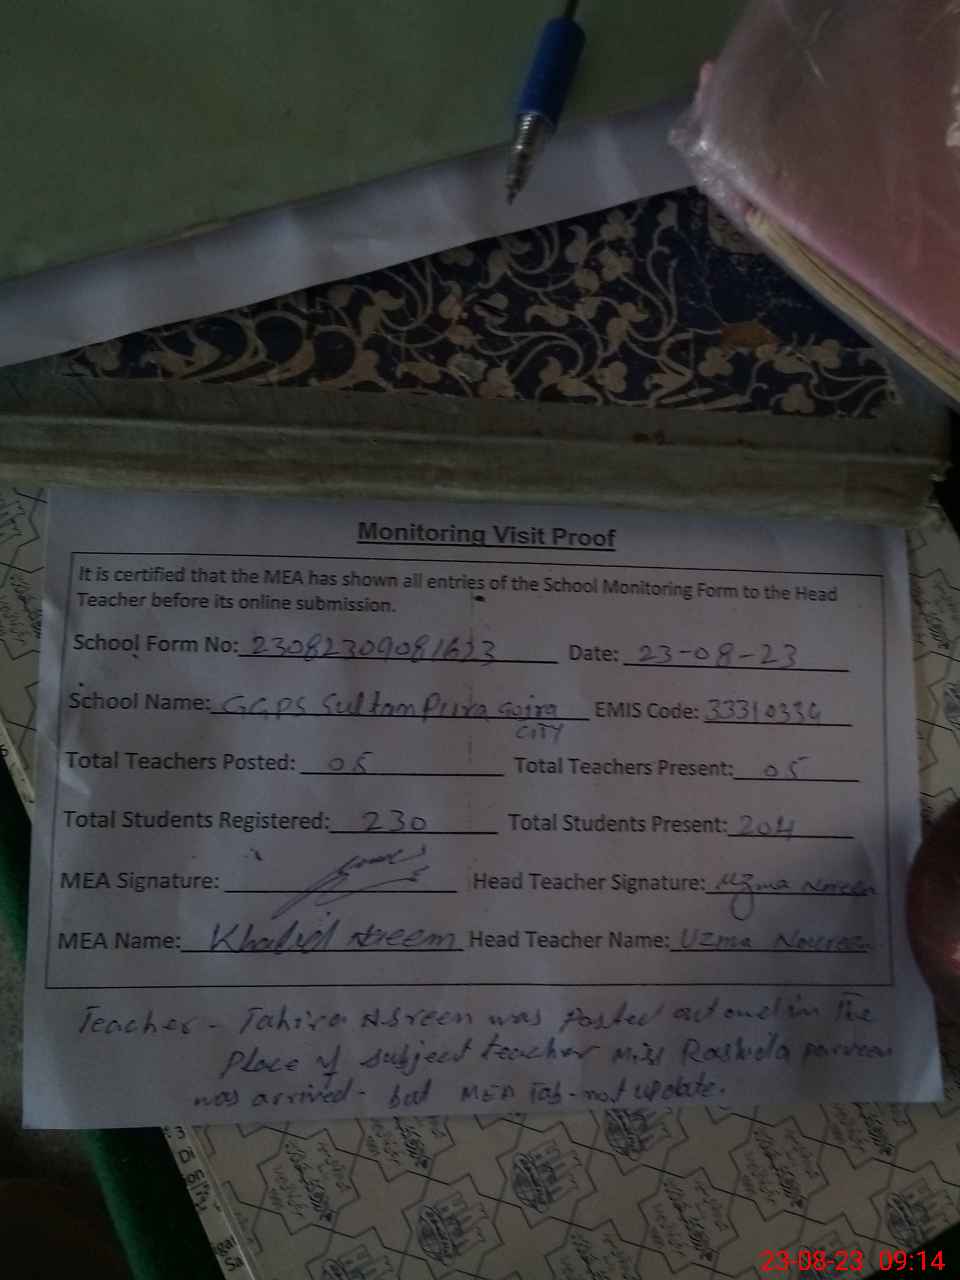 Monitoring Visit Proof
It is certified that the MEA has shown all entries of the School Monitoring Form to the Head
Teacher before its online submission.
School Form No: 23082309081623 Date: 23-08-23
School Name: GGPS Sultan Pura Gojra EMIS Code: 33310334
CITY
Total Teachers Posted: 05 Total Teachers Present: 05
Total Students Registered: 230 Total Students Present: 204
MEA Signature: Head Teacher Signature: Uzma Noreen
MEA Name: Khalid Head Teacher Name: Uzma Noureen
Teacher - Tahira was Posted out and in The
Place of subject teacher Miss Rashida parveen
was arrived - but MEA Tab - not update.
23-08-23 09:14